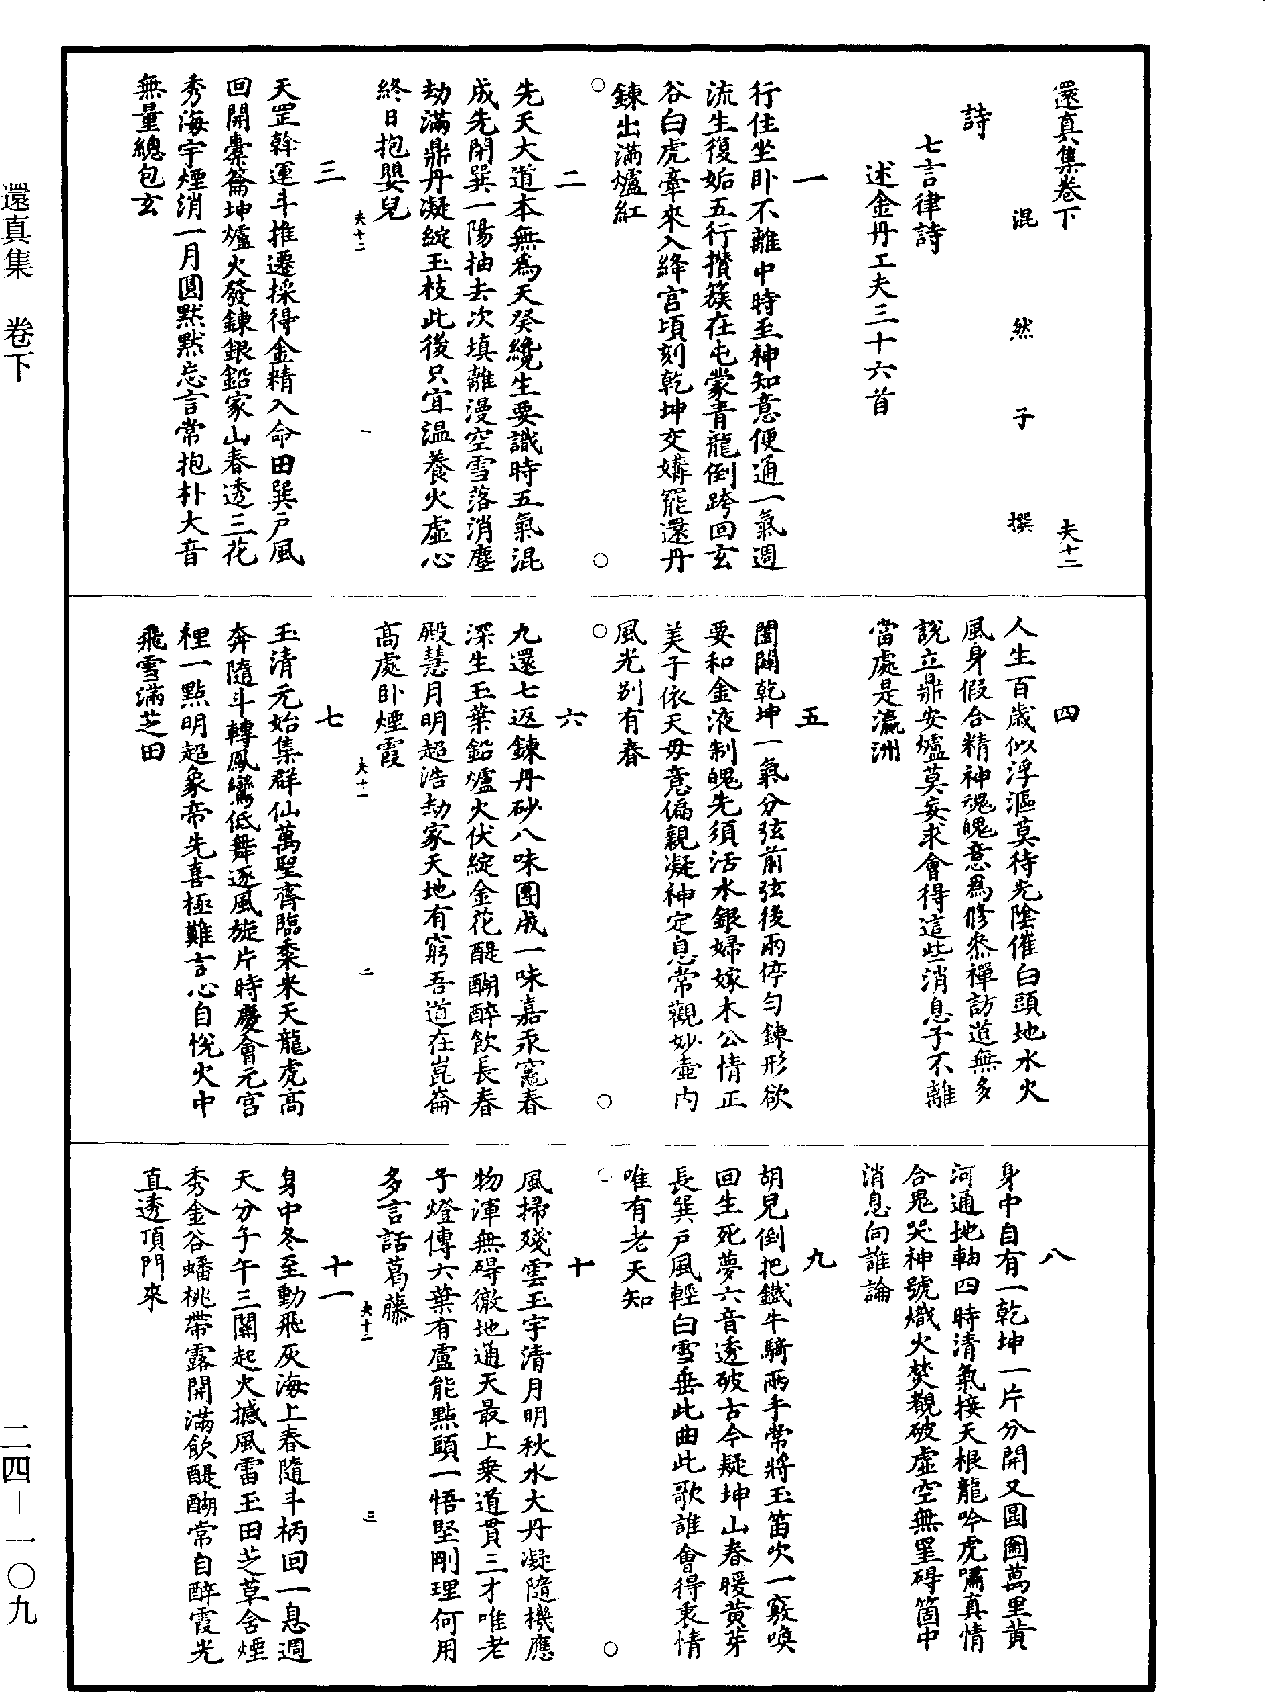 還真集卷下　夫十二
混然子撰
詩
七言律詩
述金丹工夫三十六首
一
行住坐卧不離中時至神知意便通一氣週
流生復姤五行攢簇在屯蒙青龍倒跨回玄
谷白虎牽來入絳宮頃刻乾坤交媾罷還丹
鍊出滿爐紅
二
先天大道本無為天癸纔生要識時五氣混
成先閉巽一陽抽去次填離漫空雪落消塵
劫滿鼎丹凝綻玉枝此後只宜温養火虛心
終日抱嬰兒
夫十二　一
三
天罡斡運斗推遷採得金精入命田巽戶風
回開橐籥坤爐火發鍊銀鉛家山春透三花
秀海宇煙消一月圓默默忘言常抱朴大音
無量總包玄
四
人生百歲似浮漚莫待光陰催白頭地水火
風身假合精神魂魄意為修叅禪訪道無多
說立鼎安爐莫妄求會得這些消息子不離
當處是瀛洲
五
闔闢乾坤一氣分弦前弦後兩停勻鍊形欲
要和金液制魄先須活水銀婦嫁木公情正
美子依天母意偏親凝神定息常觀妙壺内
風光別有春
六
九還七返鍊丹砂八味團成一味嘉汞竈春
深生玉葉鉛爐火伏綻金花醍醐醉飲長春
殿慧月明超浩劫家天地有窮吾道在崑崙
高處卧煙霞
夫十二　二
七
玉清元始集群仙萬聖齊臨黍米天龍虎高
奔隨斗轉鳳鸞低舞逐風旋片時慶會元宮
裡一點明超象帝先喜極難言心自悅火中
飛雪滿芝田
八
身中自有一乾坤一片分開又圓圇萬里黃
河通地軸四時清氣接天根龍吟虎嘯真情
合鬼哭神號熾火焚觀破虛空無罣碍箇中
消息向誰論
九
胡兒倒把鐵牛騎兩手常將玉笛吹一竅喚
回生死夢六音透破古今疑坤山春暖黃芽
長巽戶風輕白雪垂此曲此歌誰會得衷情
唯有老天知
十
風掃殘雲玉宇清月明秋水大丹凝隨機應
物渾無碍徹地通天最上乗道貫三才唯老
子燈傳六葉有盧能點頭一悟堅剛理何用
多言話葛藤
夫十二　三
十一
身中冬至動飛灰海上春隨斗柄回一息週
天分子午三關起火撼風雷玉田芝草舍煙
秀金谷蟠桃帶露開滿飲醍醐常自醉霞光
直透頂門來
還真集　卷下
二四－一〇九